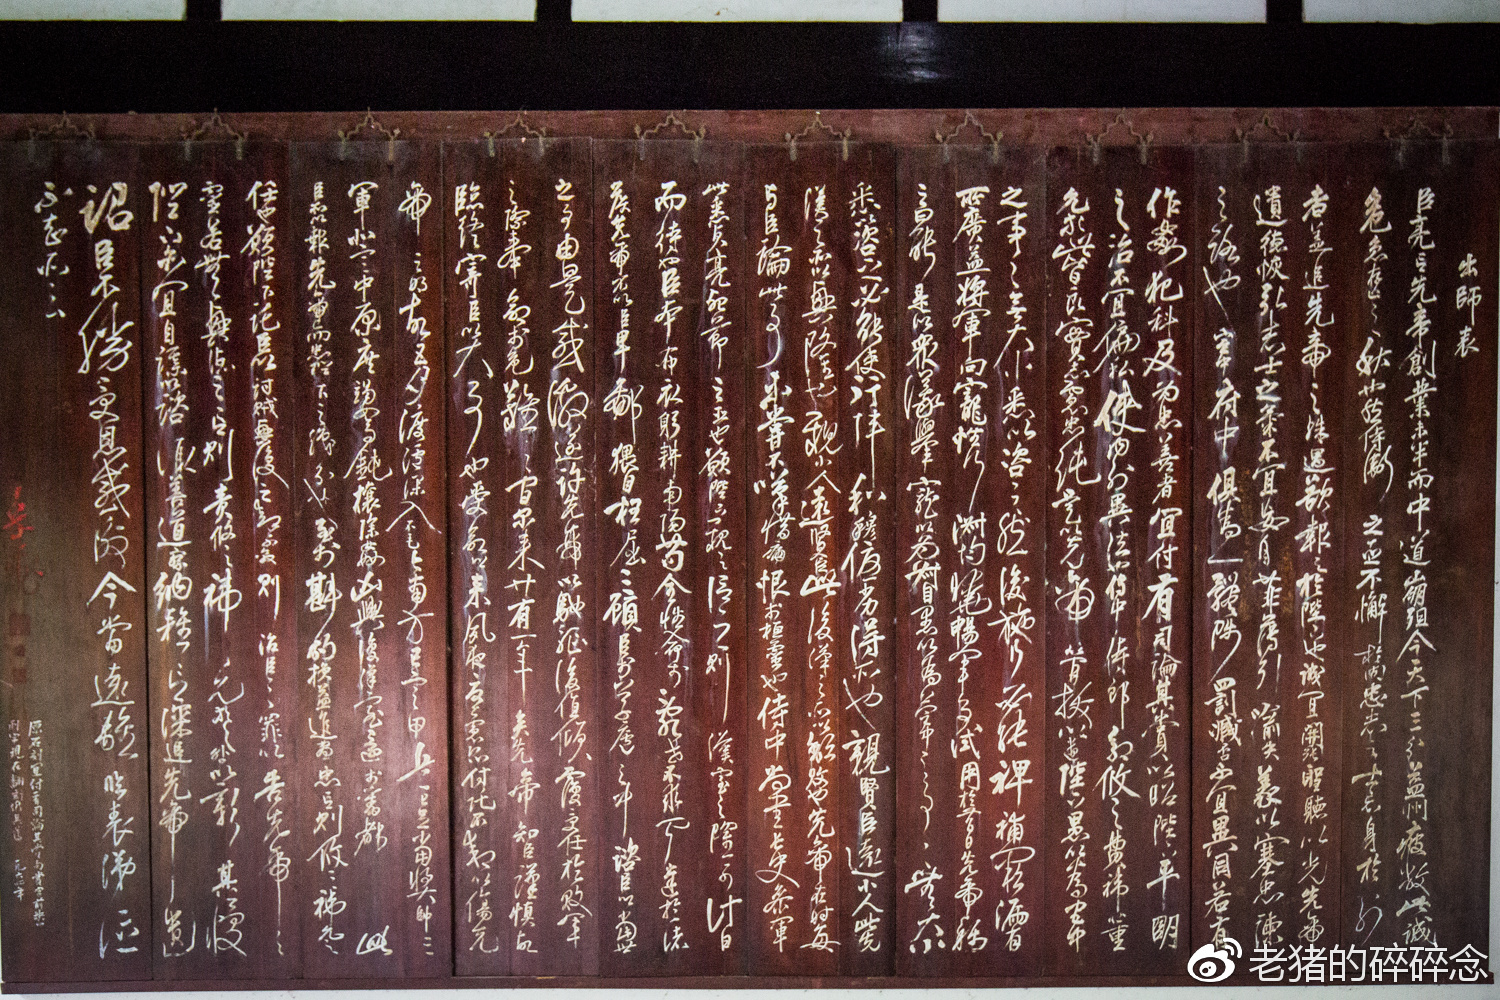 出師表
臣亮言先帝創業未半而中道崩殂今天下三分益州疲敝此誠
危急存亡之秋也然侍衛之臣不懈於內忠志之士忘身於外
者蓋追先帝之殊遇欲報之於陛下也誠宜開張聖聽以光先帝
遺德恢弘志士之氣不宜妄自菲薄引喻失義以塞忠諫
之路也宮中府中俱為一體陟罰臧否不宜異同若有
作姦犯科及為忠善者宜付有司論其刑賞以昭陛下平明
之治不宜偏私使內外異法也侍中侍郎郭攸之費禕董
允等此皆良實志慮忠純是以先帝簡拔以遺陛下愚以為宮中
之事事無大小悉以咨之然後施行必能裨補闕漏有
所廣益將軍向寵性行淑均曉暢軍事試用於昔日先帝稱
之曰能是以眾議舉寵以為督愚以為營中之事事無大小
悉咨之必能使行陣和穆優劣得所也親賢臣遠小人此先
漢之所以興隆也親小人遠賢臣此後漢之所以傾頹也先帝在時每
與臣論此事未嘗不嘆惜痛恨於桓靈也侍中尚書長史參軍
此悉貞亮死節之臣也願陛下親之信之則漢室之隆可計日
而待也臣本布衣躬耕南陽苟全性命於亂世不求聞達於諸
侯先帝不以臣卑鄙猥自枉屈三顧臣於草廬之中諮臣以當世
之事由是感激遂許先帝以驅馳後值傾覆受任於敗軍
之際奉命於危難之間爾來廿有一年矣先帝知臣謹慎故
臨終寄臣以大事也受命以來夙夜憂慮恐付託不效以傷先
帝之明故五月渡瀘深入不毛今南方已定甲兵已足當獎帥三
軍北定中原庶竭駑鈍攘除姦凶興復漢室還於舊都此
臣所以報先帝而忠陛下之職分也至於斟酌損益進盡忠言則攸之禕允之
任也願陛下託臣以討賊興復之效不效則治臣之罪以告先帝之
靈若無興德之言則責攸之禕允等之咎以彰其慢
陛下亦宜自謀以諮諏善道察納雅言深追先帝遺
詔臣不勝受恩感激今當遠離臨表涕泣
不知所云